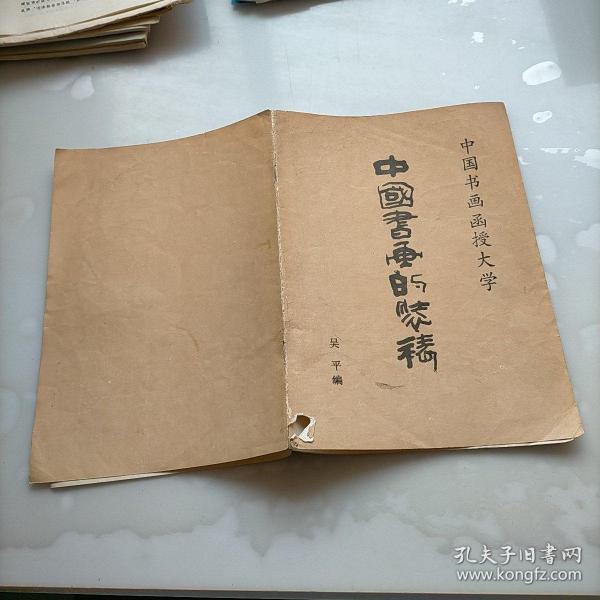 中国书画函授大学
中國書画的裝裱
吴平编
孔夫子旧书网
www.kongfz.com